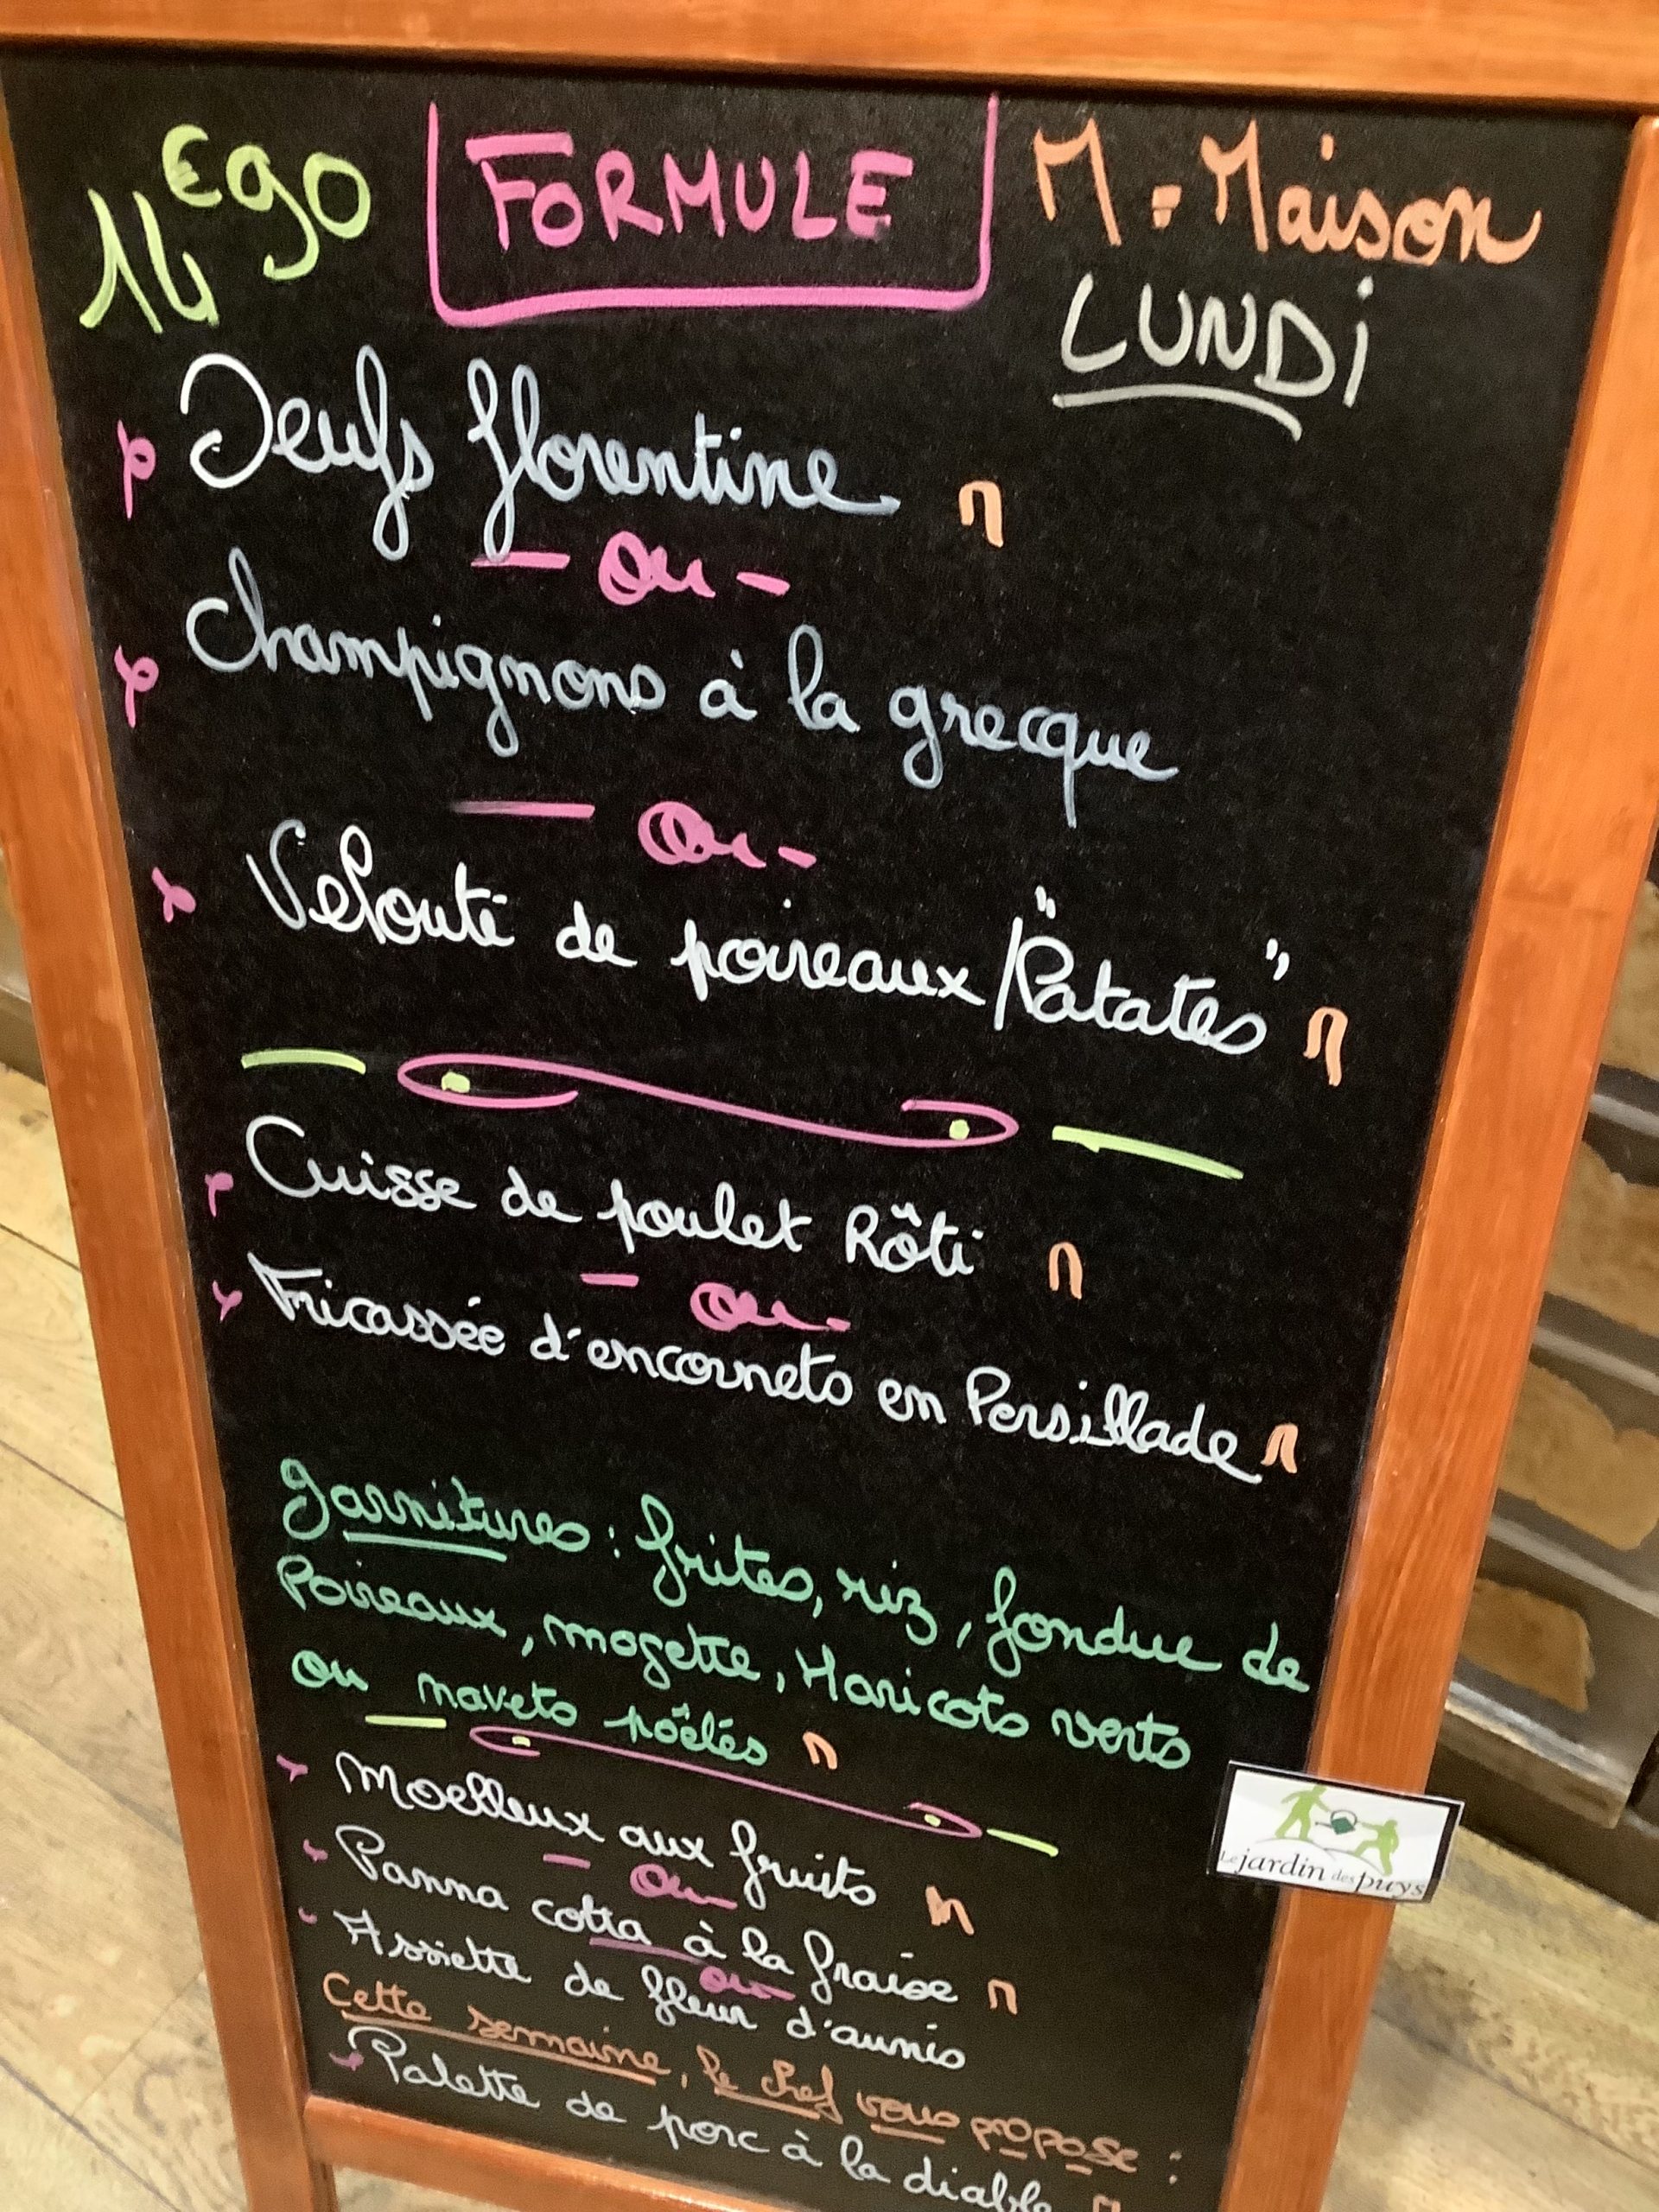 14€90 FORMULE M = Maison
LUNDi
Oeufs florentine M
- ou -
Champignons à la grecque
- ou -
Velouté de poireaux / "Patates" M
Cuisse de poulet Rôti M
- ou -
Fricassée d'encornets en Persillade M
Garnitures : frites, riz, fondue de
Poireaux, mogette, Haricots verts
ou navets poêlés M
Moelleux aux fruits M
- ou -
Panna cotta à la fraise M
- ou -
Assiette de fleur d'aunis
Cette semaine, le chef vous propose :
Palette de porc à la diable M
Le jardin des puys